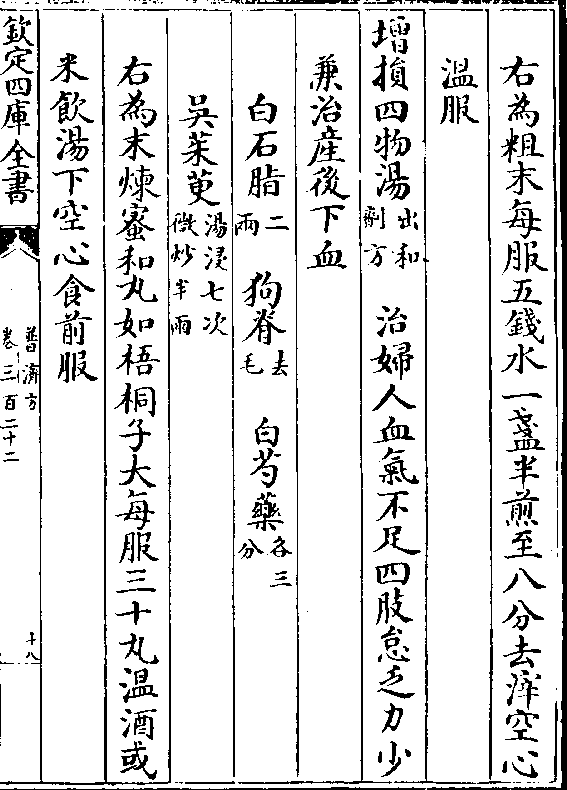 右為粗末每服五錢水一盞半煎至八分去滓空心
溫服
增損四物湯出和劑方 治婦人血氣不足四肢怠乏力少
兼治產後下血
白石脂二兩 狗脊去毛 白芍藥各三分
吳茱萸湯浸七次微炒半兩
右為末煉蜜和丸如梧桐子大每服三十丸溫酒或
米飲湯下空心食前服
欽定四庫全書
普濟方
卷三百二十二
十八